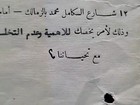 ١٢ شارع الكامل محمد بالزمالك - أمام
وذلك لأمر يخصك للاهمية وعدم التخلف
مع تحياتنا ؟